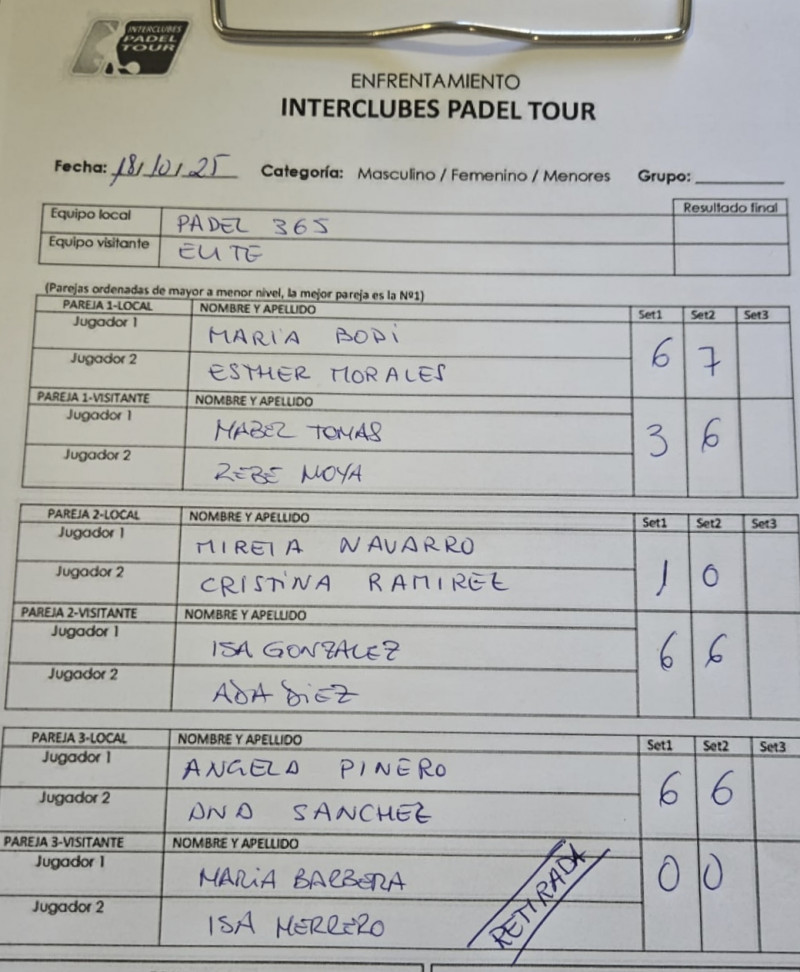 INTERCLUBES
PADEL
TOUR
ENFRENTAMIENTO
INTERCLUBES PADEL TOUR
Fecha: 18/10/25 Categoría: Masculino / Femenino / Menores Grupo:
Resultado final
Equipo local PADEL 365
Equipo visitante ELITE
(Parejas ordenadas de mayor a menor nivel, la mejor pareja es la Nº1)
PAREJA 1-LOCAL NOMBRE Y APELLIDO Set1 Set2 Set3
Jugador 1 MARIA BODI
6 7
Jugador 2 ESTHER MORALES
PAREJA 1-VISITANTE NOMBRE Y APELLIDO
Jugador 1 MABEL TOMAS
3 6
Jugador 2 REBE MOYA
PAREJA 2-LOCAL NOMBRE Y APELLIDO Set1 Set2 Set3
Jugador 1 MIREIA NAVARRO
1 0
Jugador 2 CRISTINA RAMIREZ
PAREJA 2-VISITANTE NOMBRE Y APELLIDO
Jugador 1 ISA GONZALEZ
6 6
Jugador 2 ADA DIEZ
PAREJA 3-LOCAL NOMBRE Y APELLIDO Set1 Set2 Set3
Jugador 1 ANGELA PINERO
6 6
Jugador 2 ANA SANCHEZ
PAREJA 3-VISITANTE NOMBRE Y APELLIDO
Jugador 1 MARIA BARBERA
0 0
Jugador 2 ISA HERRERO
RETIRADA